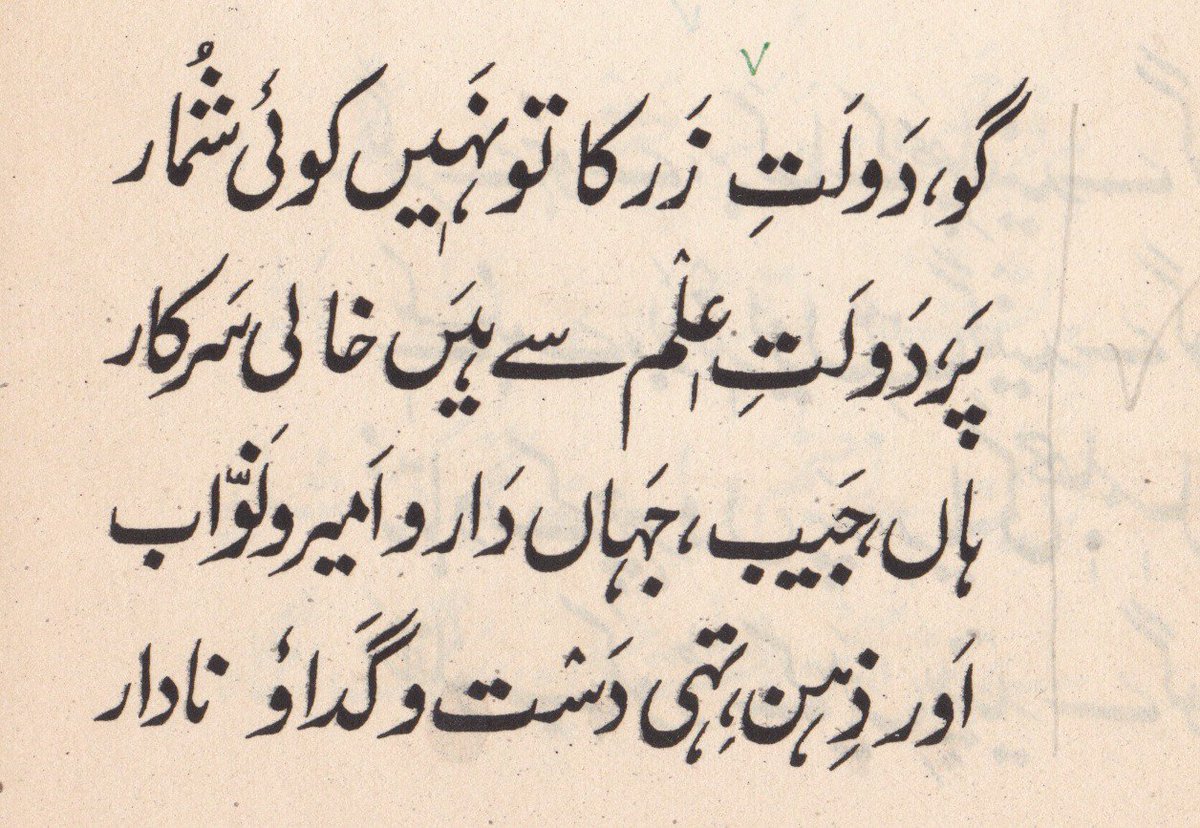 گو، دَولَتِ زَر کا تو نَہیں کوئی شُمار
پَر، دَولَتِ عِلْم سے ہَیں خالی سَرکار
ہاں، جَیب، جَہاں دَار و اَمیر و نَوَّاب
اَور ذِہن، تِہی دَسْت و گَدا و نادار